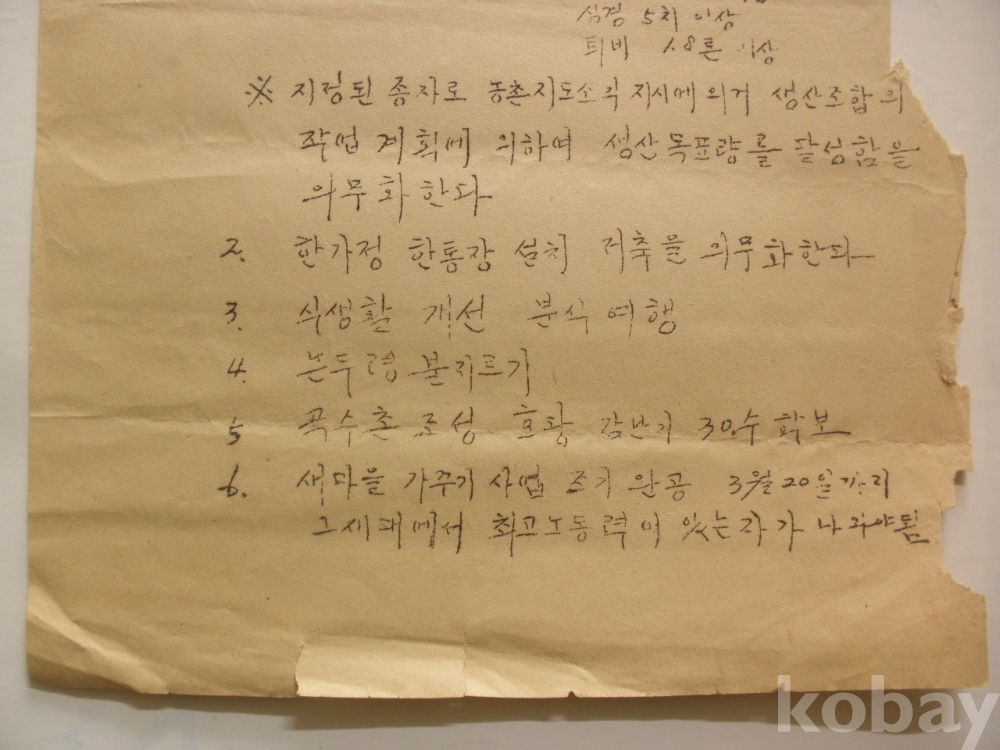 심경 5치 이상
퇴비 1.8톤 이상
※ 지정된 종자로 농촌지도소의 지시에 의거 생산조합의
작업 계획에 의하여 생산목표량를 달성함을
의무화한다
2. 한가정 한통장 설치 저축을 의무화한다
3. 식생활 개선 분식 여행
4. 논두렁 불지르기
5 곡수촌 조성 30수 확보
6. 새마을 가꾸기 사업 조기 완공 3월 20일까지
그세대에서 최고노동력이 있는자가 나와야됨
kobay